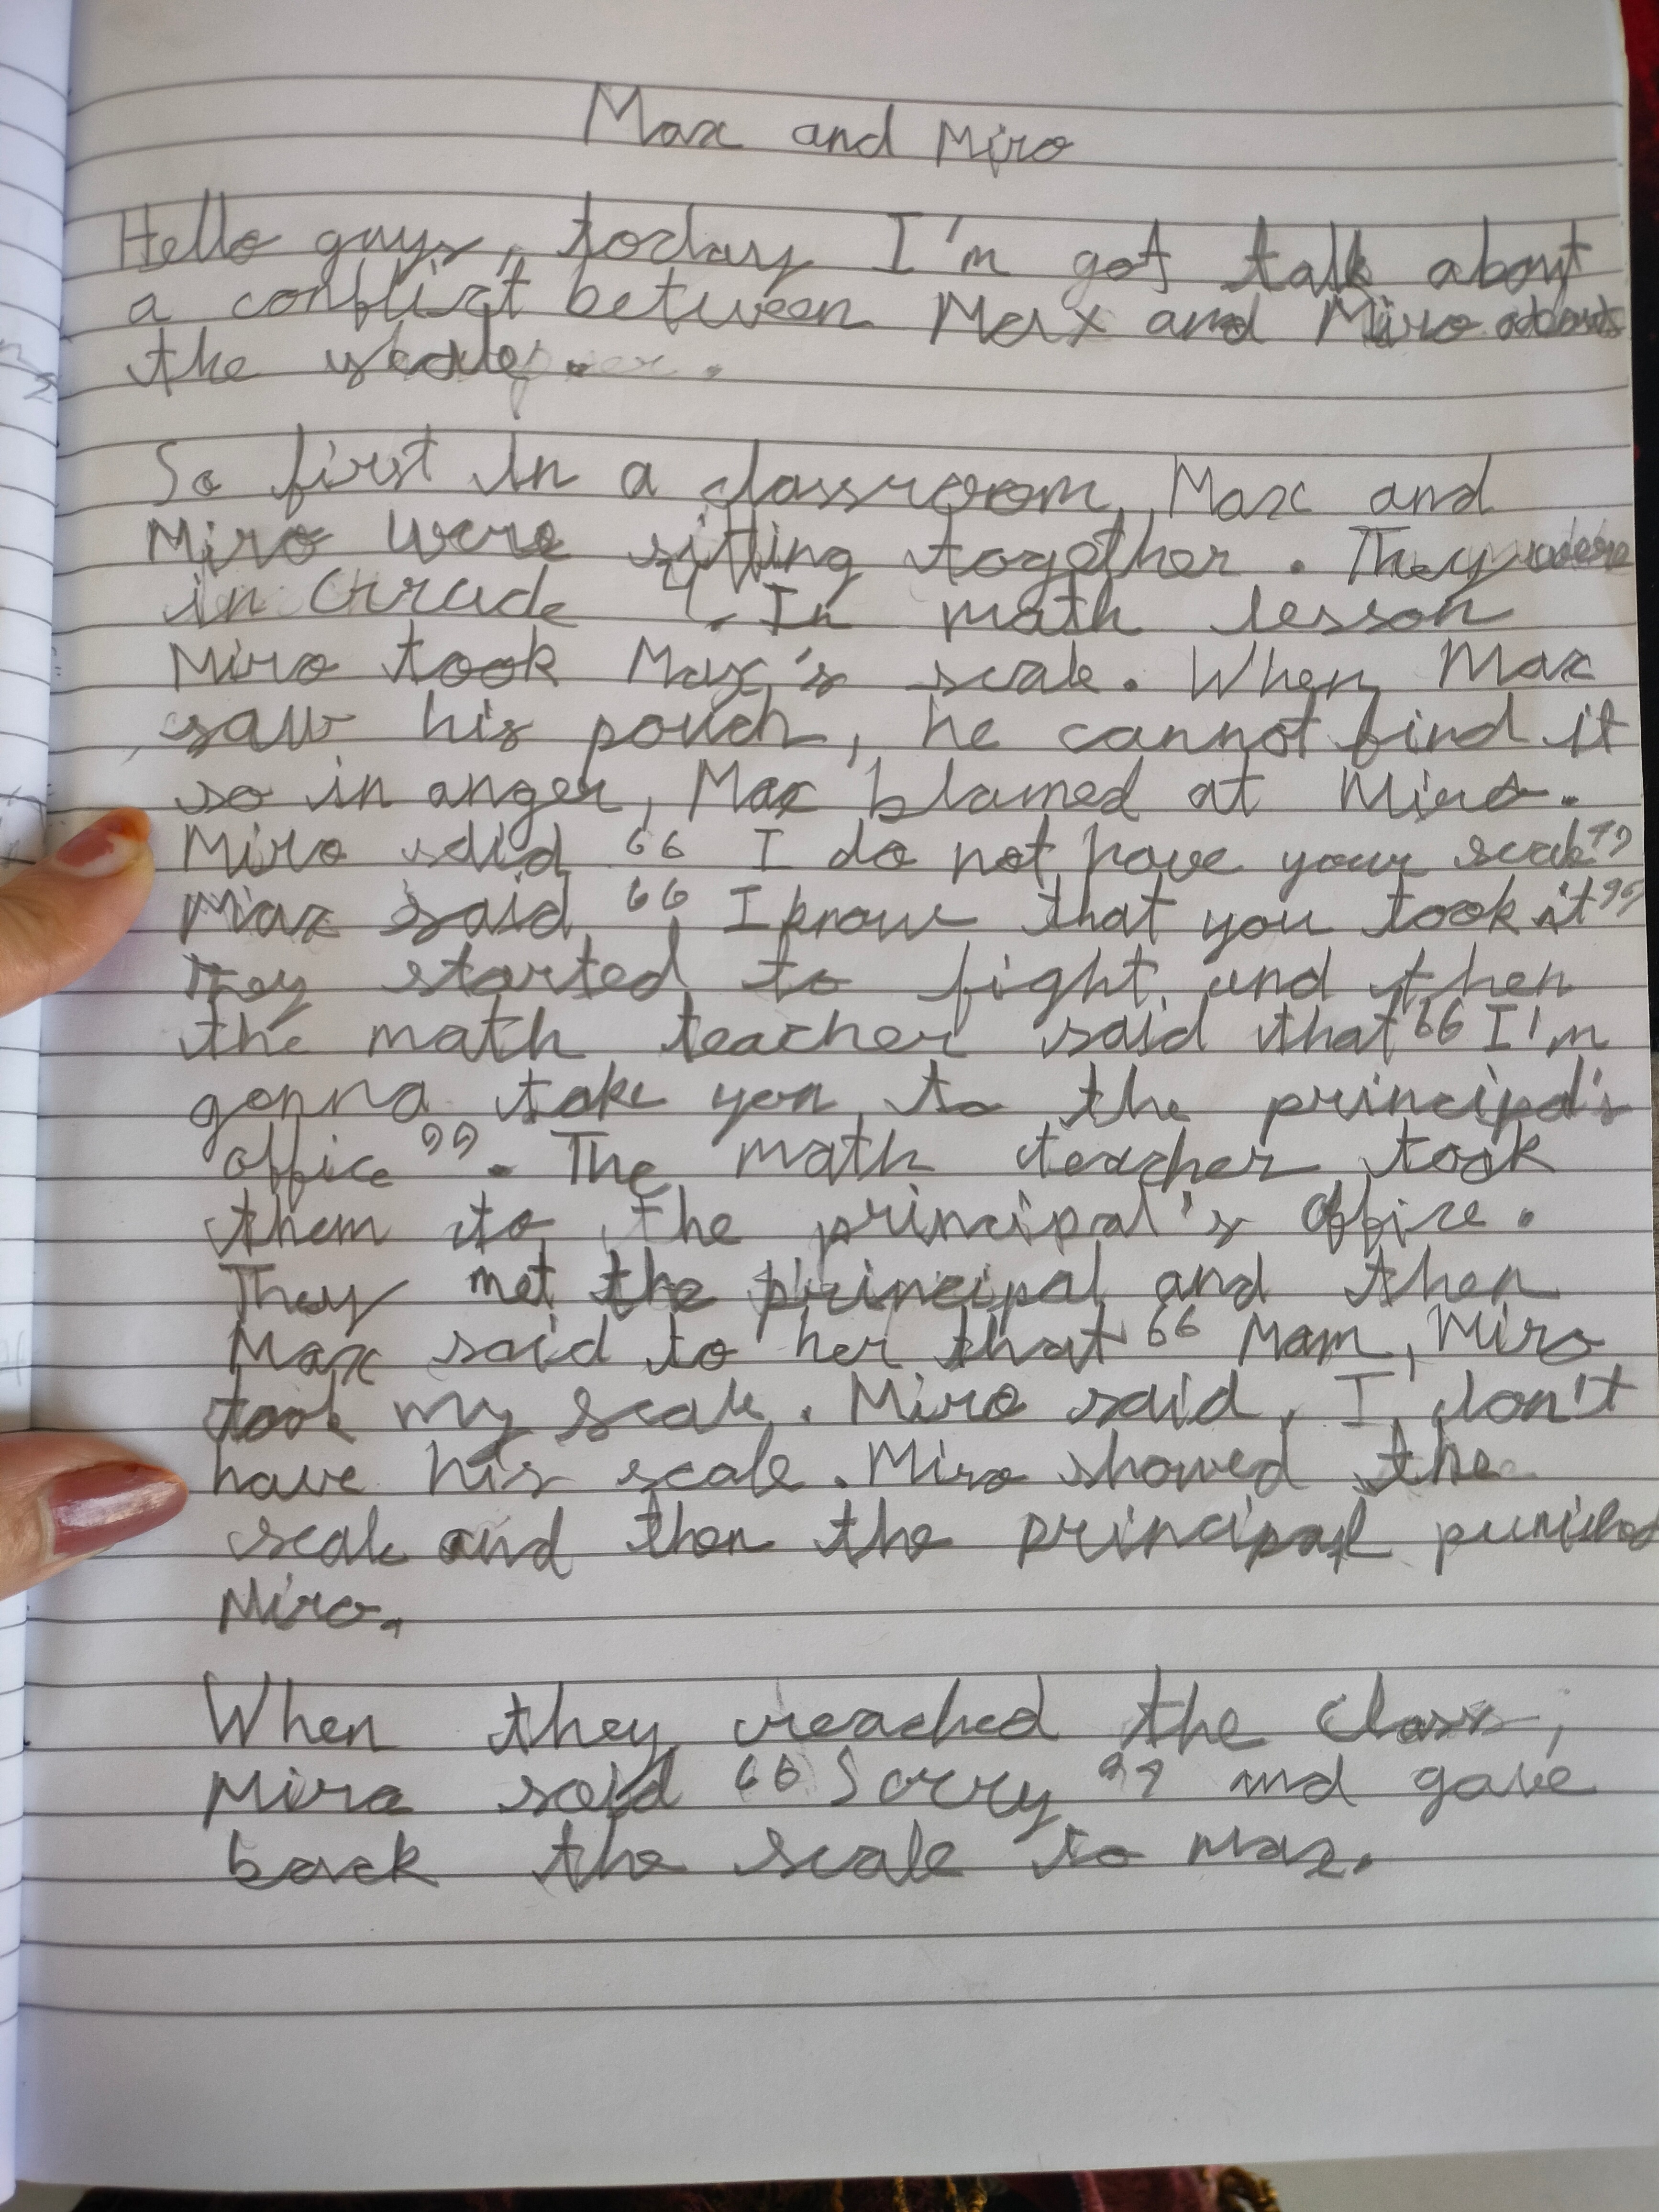 Max and Miro
Hello guys, today I'm got talk about
a conflict between Max and Miro about
the scale.
So first in a classroom, Max and
Miro were sitting together. They were
in Grade 4. In math lesson
Miro took Max's scale. When Max
saw his pouch, he cannot find it
so in anger, Max blamed at Miro.
Miro said “ I do not have your scale”
Max said “ I know that you took it”
They started to fight and then
the math teacher said that “ I'm
gonna take you to the principal's
office”. The math teacher took
them to the principal's office.
They met the principal and then
Max said to her that “ Mam, Miro
took my scale. Miro said, I don't
have his scale. Miro showed the
scale and then the principal punished
Miro.
When they reached the class,
Miro said “ Sorry ” and gave
back the scale to Max.